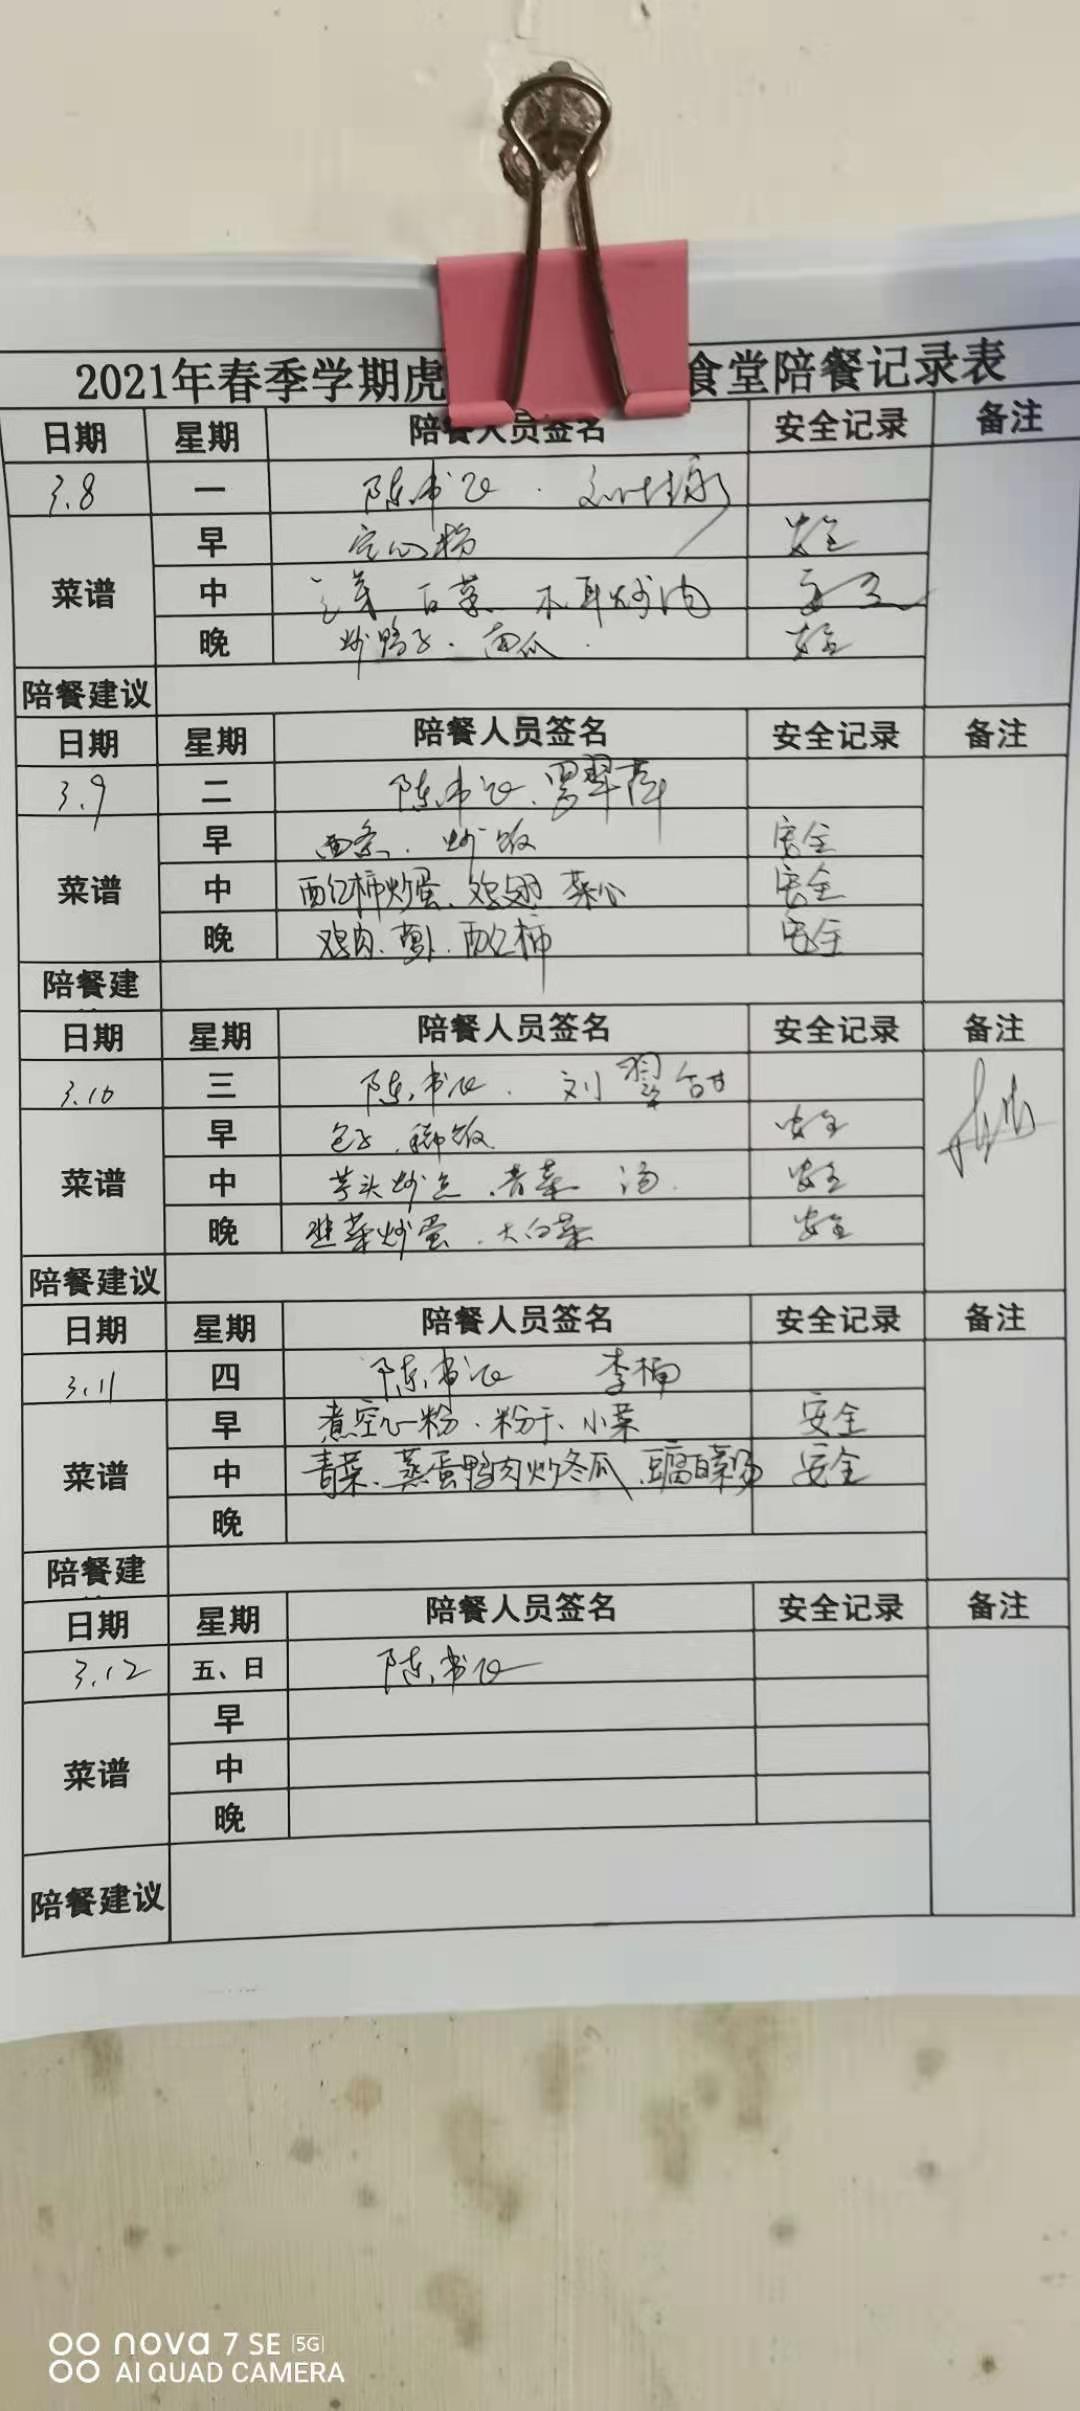 2021年春季学期虎 食堂陪餐记录表
日期 星期 陪餐人员签名 安全记录 备注
3.8 一 陈书记
早 空心粉 安全
菜谱 中 白菜 木耳炒肉 安全
晚 炒鸭子、南瓜 安全
陪餐建议
日期 星期 陪餐人员签名 安全记录 备注
3.9 二 陈书记、罗翠萍
早 面条、炒饭 安全
菜谱 中 西红柿炒蛋、鸡翅 菜心 安全
晚 鸡肉、萝卜、西红柿 安全
陪餐建
日期 星期 陪餐人员签名 安全记录 备注
3.10 三 陈书记 刘翠
早 包子 安全
菜谱 中 芋头炒 、青菜 汤 安全
晚 韭菜炒蛋、大白菜 安全
陪餐建议
日期 星期 陪餐人员签名 安全记录 备注
3.11 四 陈书记 李楠
早 煮空心粉、粉干、小菜 安全
菜谱 中 青菜、蒸蛋鸭肉炒冬瓜、豆腐白菜汤 安全
晚
陪餐建
日期 星期 陪餐人员签名 安全记录 备注
3.12 五、日 陈书记
早
菜谱 中
晚
陪餐建议
nova 7 SE 5G
AI QUAD CAMERA